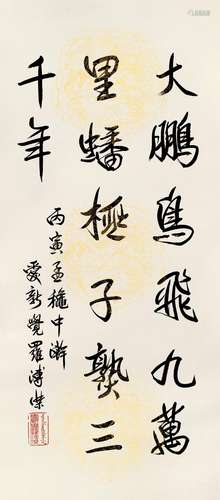 大鵬鳥飛九萬
里蟠極子熟三
千年
丙寅孟龝中澣
愛新覺羅溥傑